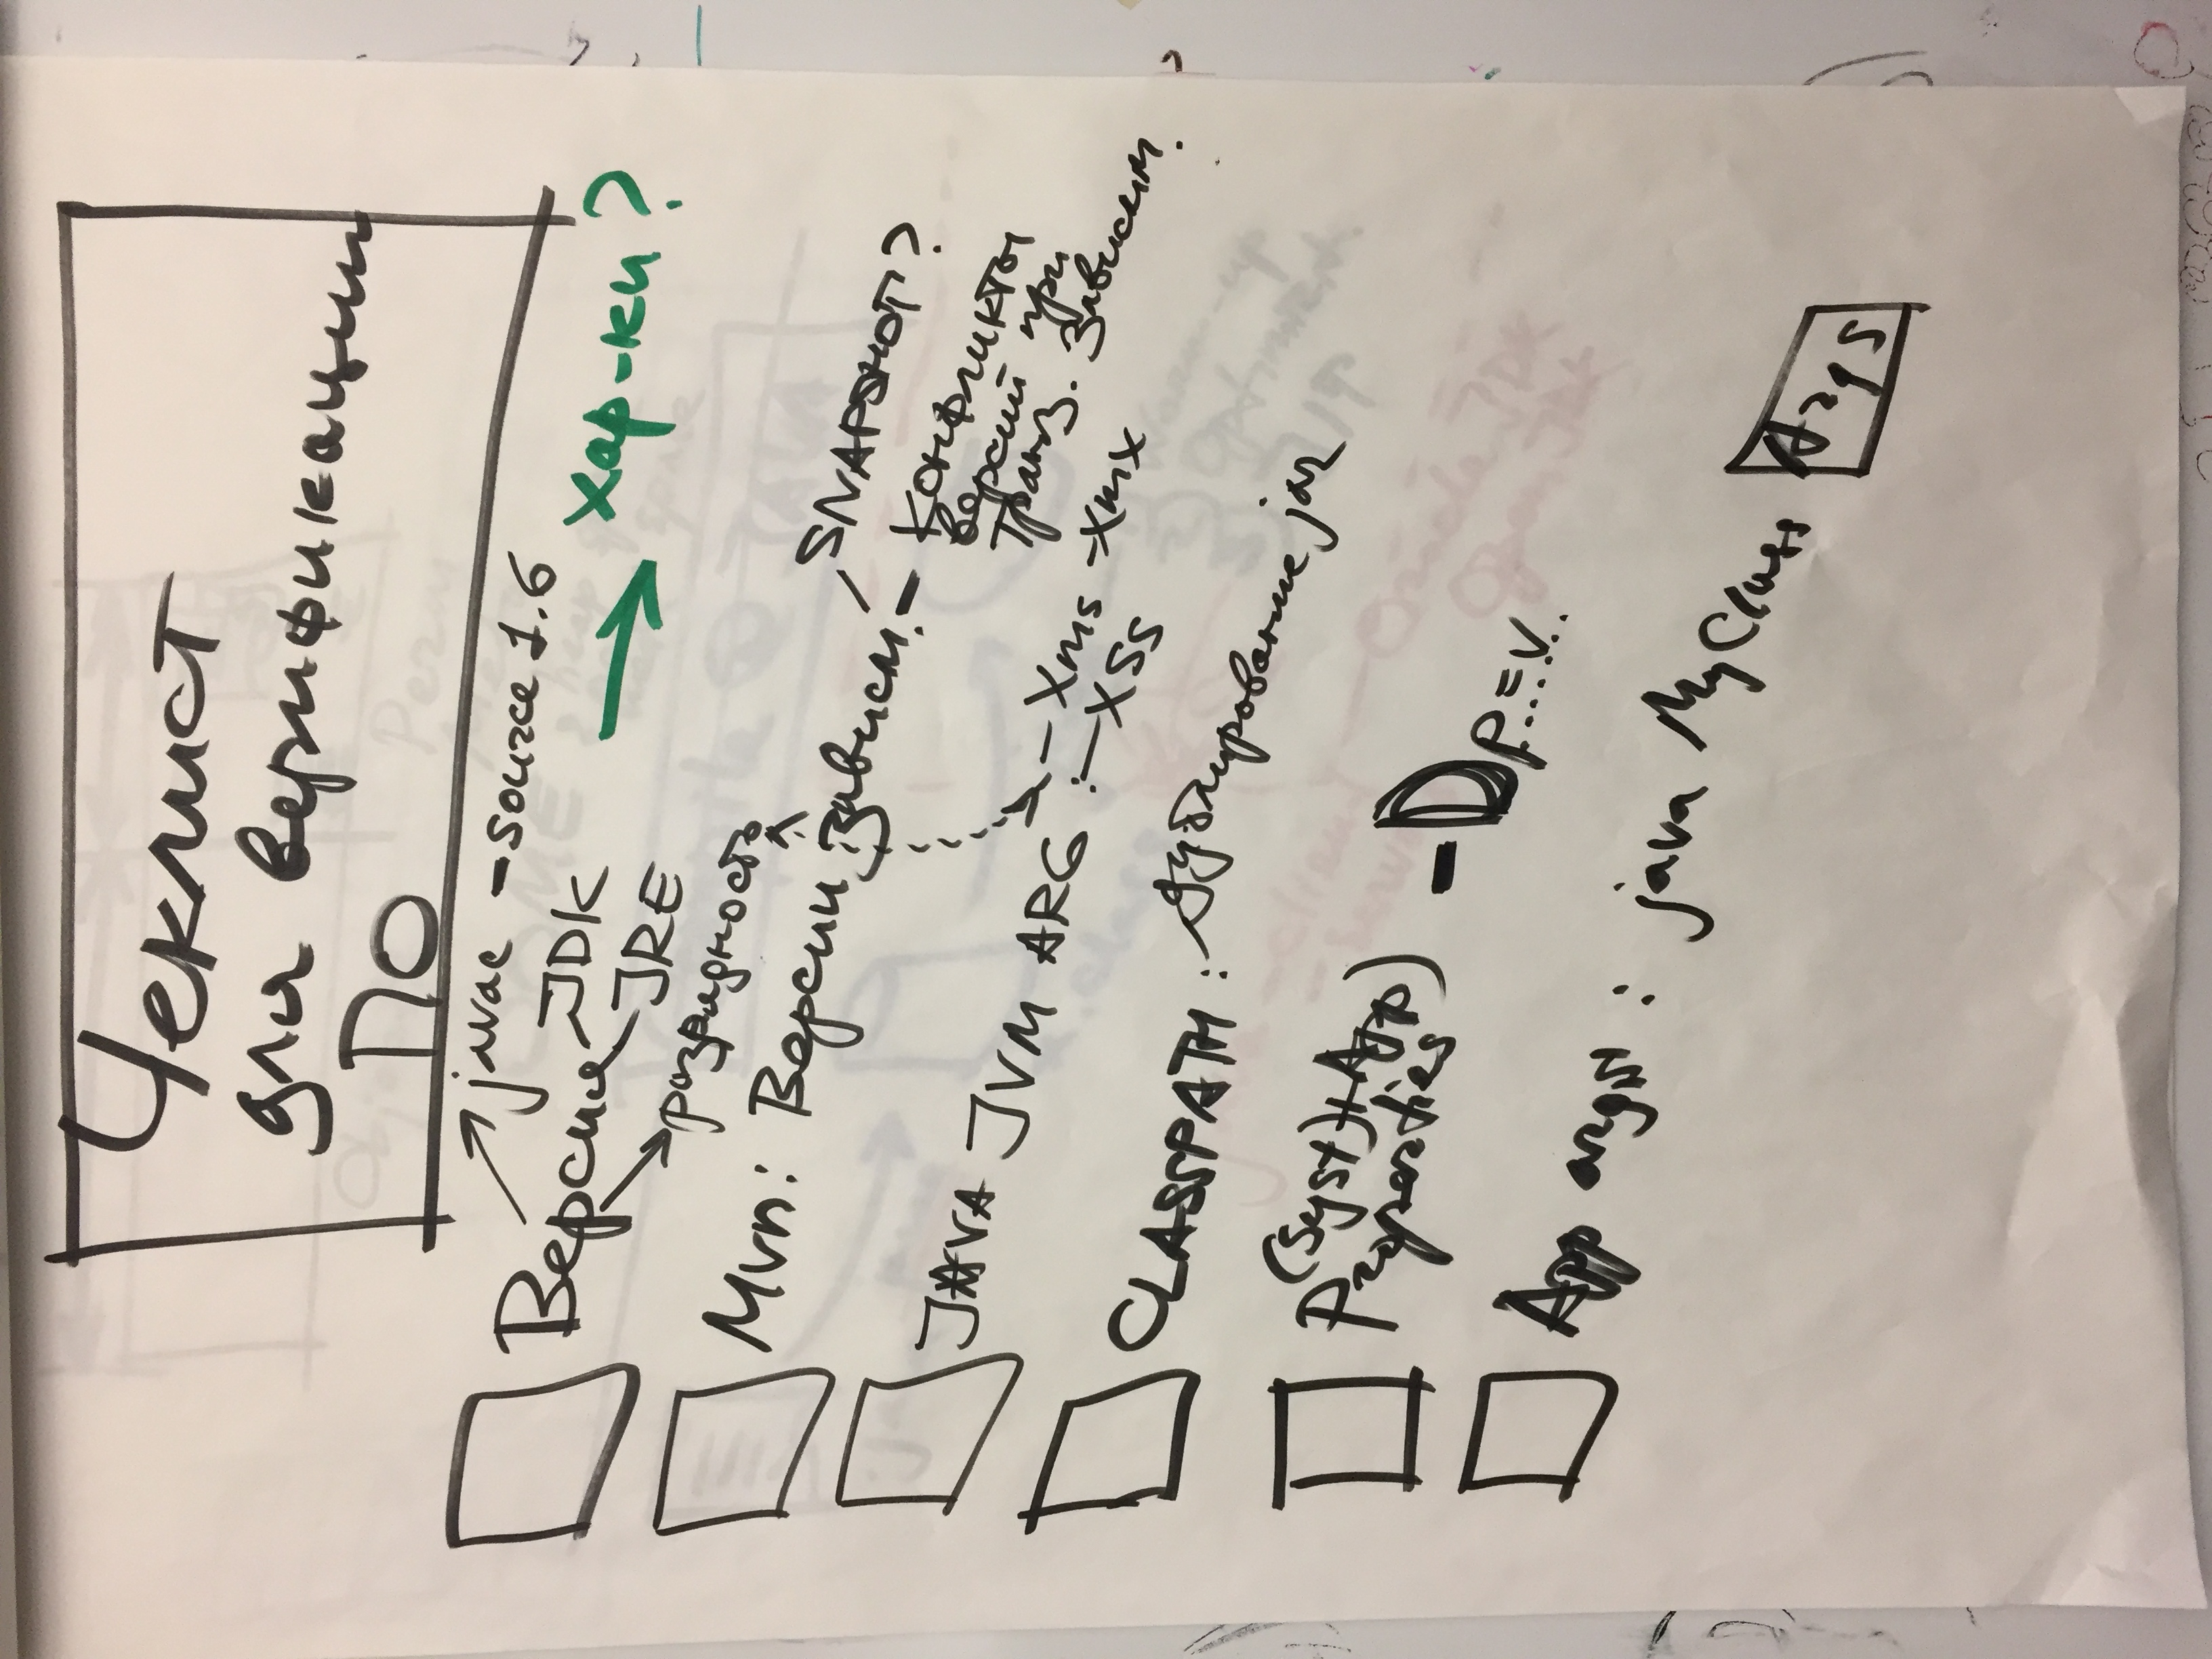 Чеклист
для верификации
ПО
javac -source 1.6
Версия JDK
JRE
разрядность
→ хар-ки?
Mvn: Версии зависим. - SNAPSHOT?
Конфликты
версий при
транз. зависим.
JAVA JVM ARG : -Xms -Xmx
-XSS
CLASSPATH : дублирование jar
(Syst)+App)
Properties
-Dp=v
App args : java MyClass Args